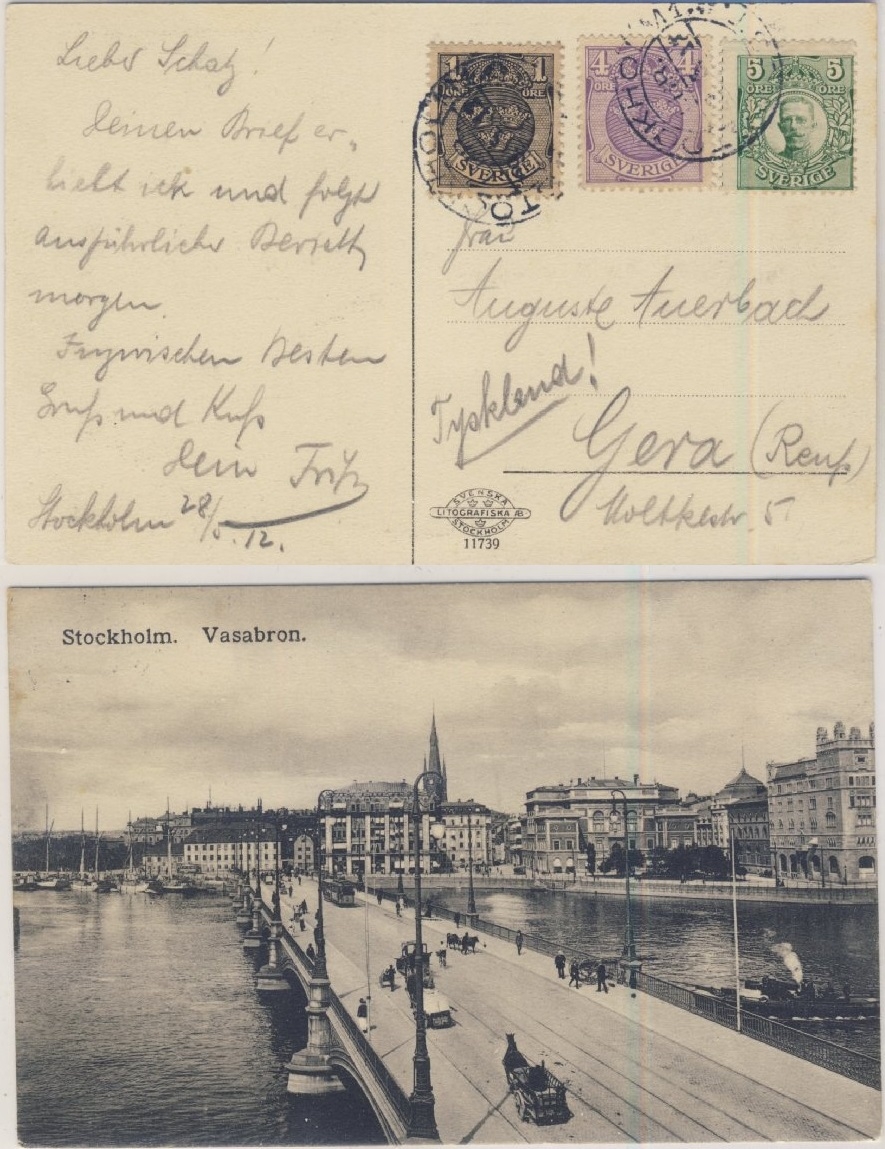 Lieber Schatz!
Deinen Brief er-
hielt ich und folgt
ausführlicher Bericht
morgen.
Inzwischen besten
Gruß und Kuß
Dein Fritz
Stockholm 28/5.12.
1 1
ÖRE
SVERIGE
4 4
ÖRE
SVERIGE
5 5
ÖRE ÖRE
SVERIGE
STOCKHOLM
STOCKHOLM 1
Frau
Auguste Auerbach
Tyskland!
Gera (Reuß)
Moltkestr. 5
SVENSKA
LITOGRAFISKA AB
STOCKHOLM
11739
Stockholm. Vasabron.